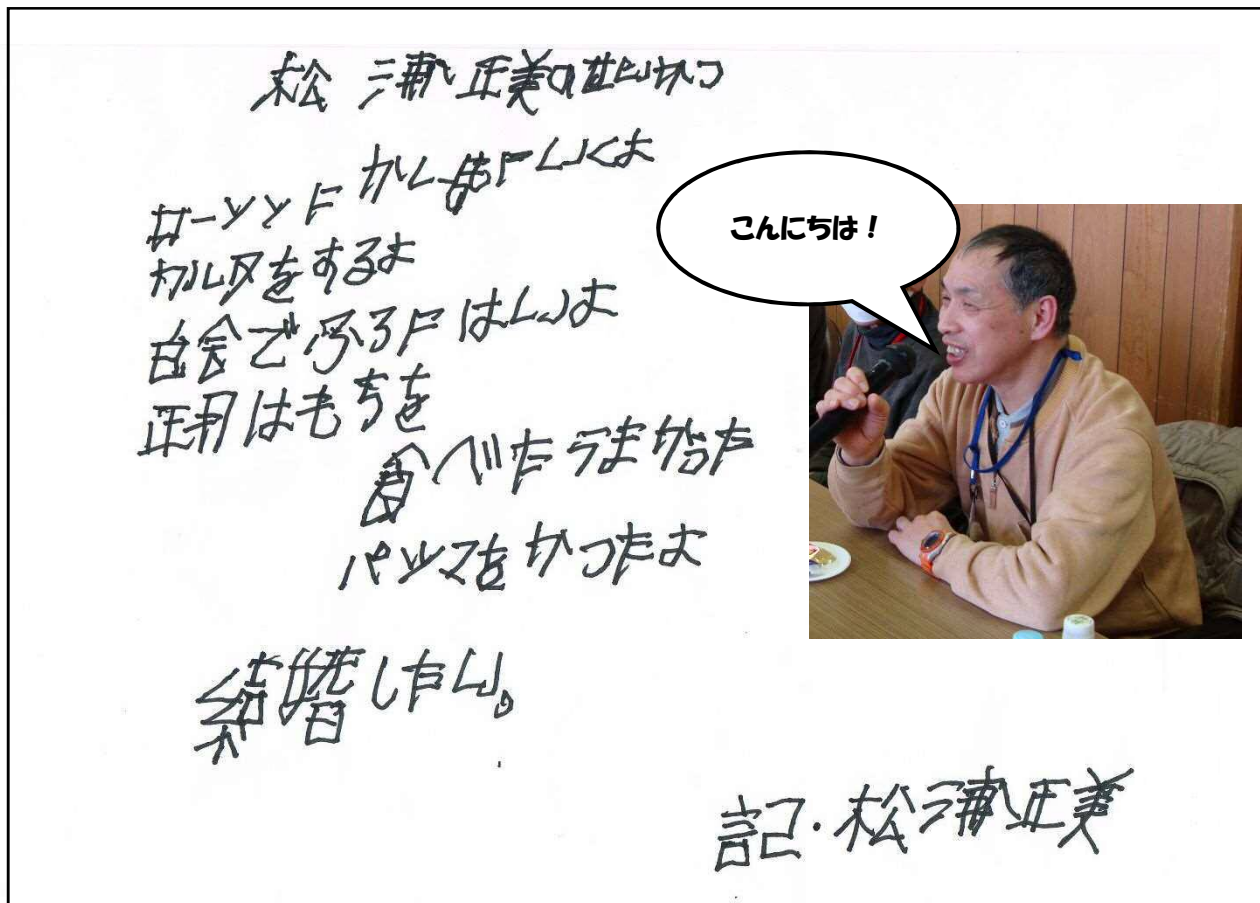 松浦正美のせいかつ
ローソンにかいものにいくよ
カルタをするよ
台舎でふろにはいるよ
正月はもちを
食べたうまかった
パンツをかったよ
結婚したい。
記・松浦正美
こんにちは！